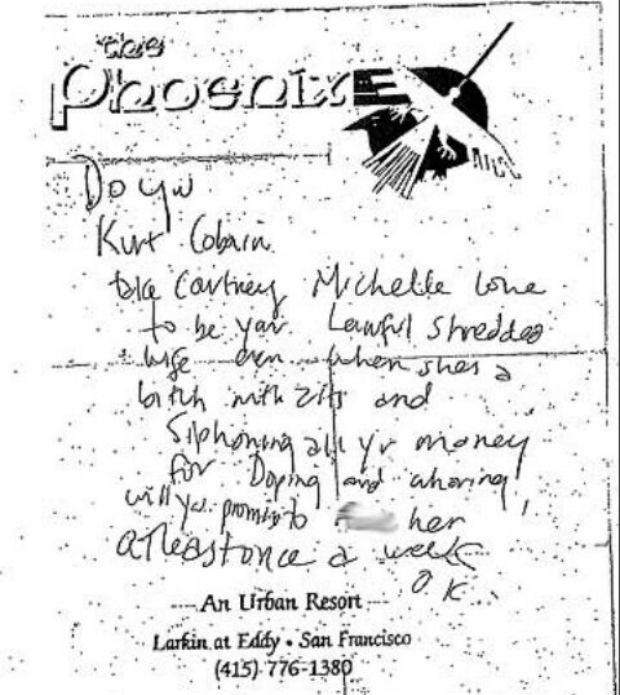 the
Phoenix
Do you
Kurt Cobain
take Cortney Michelle Love
to be your Lawful shredded
wife even when shes a
bitch with zits and
siphoning all yr money
for Doping and whoring
will you promis to her
atleastonce a week
O.K
An Urban Resort
Larkin at Eddy • San Francisco
(415) 776-1380